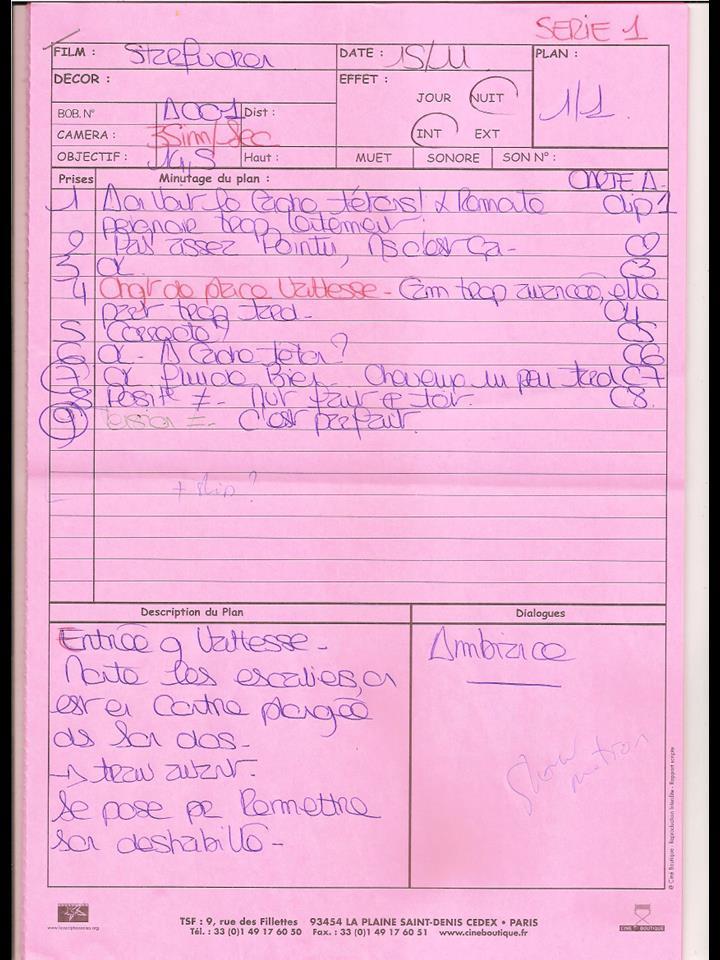 SERIE 1
FILM : Starfucker DATE : 15/11 PLAN :
DECOR : EFFET :
JOUR NUIT 1/1
BOB. N° A001 Dist :
CAMERA : 35im/sec INT EXT
OBJECTIF : 14,5 Haut : MUET SONORE SON N° :
Prises Minutage du plan : CARTE A.
1 On voit le cache téton! & Remate Clip 1
peignoir trop
2 Pas assez Pointu, Ms c'est ça - C2
3 C3
4 Chgt de place Vattesse - Cam trop avancée, elle
part trop tard - C4
5 Casquette? C5
6 Cache téton? C6
7 Bien - Cheveux un peu tard C7
8 Positº ≠ - C8.
9 Version ≠ - C'est parfait.
+ slip ?
Description du Plan Dialogues
Entrée q Vattesse -
Monte les escaliers, on
est en Contre plongée
ds son dos -
→ trav avant.
Se pose pr Remettre
son deshabillé -
Ambiance
Slow
motion
© Ciné Boutique - Reproduction Interdite - Rapport scripte
www.lesscriptsassociés.org
TSF : 9, rue des Fillettes 93454 LA PLAINE SAINT-DENIS CEDEX • PARIS
Tél. : 33 (0)1 49 17 60 50 Fax. : 33 (0)1 49 17 60 51 www.cineboutique.fr
CINÉ BOUTIQUE